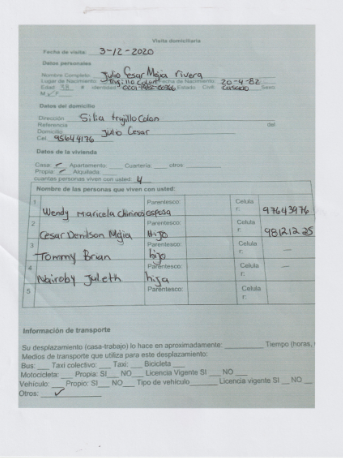 Visita domiciliaria
Fecha de visita: 3-12-2020
Datos personales
Nombre Completo: Julio Cesar Mejia rivera
Lugar de Nacimiento: Trujillo Colon Fecha de Nacimiento: 20-4-82
Edad # Identidad Estado Civil: Casado Sexo
M F
Datos del domicilio
Dirección Silia trujillo Colon
Referencia del
Domicilio Julio Cesar
Cel. 95644176
Datos de la vivienda
Casa: ✓ Apartamento: Cuartería: otros
Propia: ✓ Alquilada:
cuantas personas viven con usted: 4
Nombre de las personas que viven con usted:
1 Wendy maricela esposa Parentesco: Celular: 97643976
2 Cesar Denilson Mejia Parentesco: hijo Celular: 98121225
3 Tommy Brian Parentesco: hijo Celular: -
4 Nairoby Julieth Parentesco: hija Celular: -
5 Parentesco: Celular:
Información de transporte
Su desplazamiento (casa-trabajo) lo hace en aproximadamente: Tiempo (horas,
Medios de transporte que utiliza para este desplazamiento:
Bus: Taxi colectivo: Taxi: Bicicleta
Motocicleta: Propia: SI NO Licencia Vigente SI NO
Vehículo: Propio: SI NO Tipo de vehículo Licencia vigente SI NO
Otros: ✓